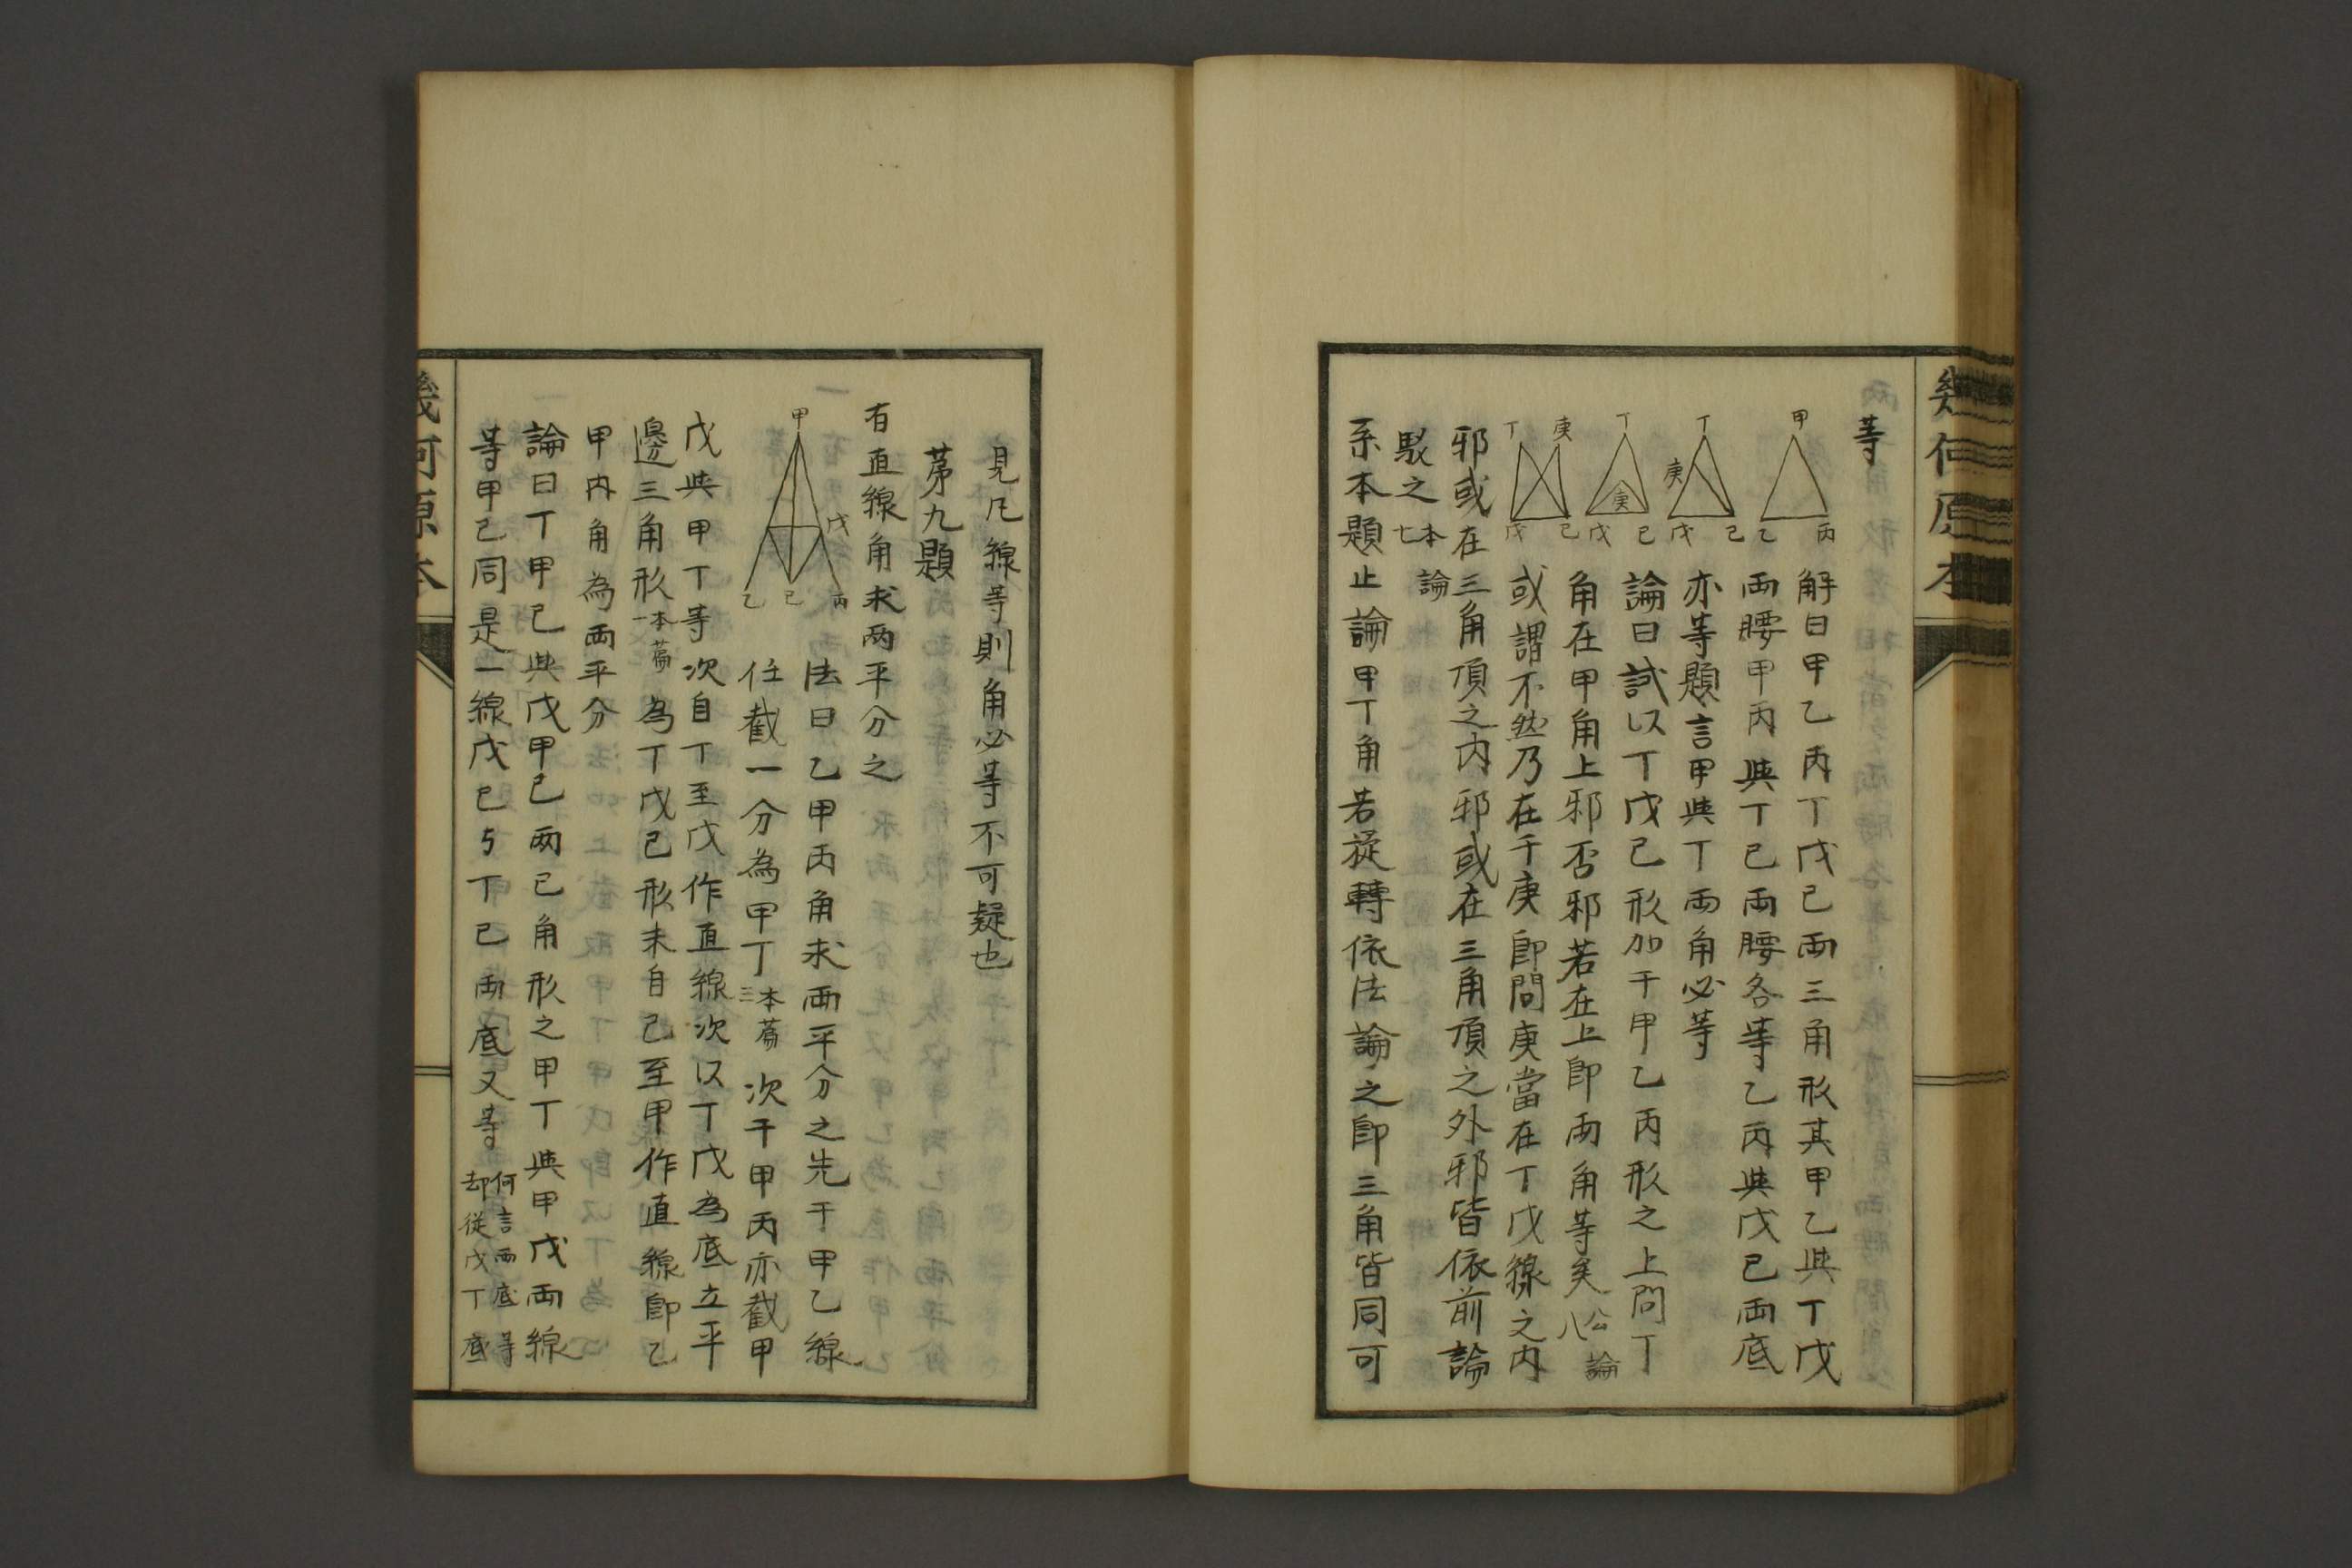 幾何原本
等
甲
乙
丙
丁
庚
戊
己
丁
庚
戊
己
丁
庚
戊
己
解曰甲乙丙丁戊己兩三角形其甲乙與丁戊
兩腰甲丙與丁己兩腰各等乙丙與戊己兩底
亦等題言甲與丁兩角必等
論曰試以丁戊己形加于甲乙丙形之上問丁
角在甲角上邪否邪若在上卽兩角等矣公論八
或謂不然乃在于庚卽問庚當在丁戊線之內
邪或在三角頂之內邪或在三角頂之外邪皆依前論
駁之本論七
系本題止論甲丁角若旋轉依法論之卽三角皆同可
見凡線等則角必等不可疑也
第九題
有直線角求兩平分之
甲
戊
乙
己
丙
法曰乙甲丙角求兩平分之先于甲乙線
任截一分為甲丁本篇三次于甲丙亦截甲
戊與甲丁等次自丁至戊作直線次以丁戊為底立平
邊三角形本篇一為丁戊己形末自己至甲作直線卽乙
甲內角為兩平分
論曰丁甲己與戊甲己兩己角形之甲丁與甲戊兩線
等甲己同是一線戊己与丁己兩底又等何言兩底等却從戊丁底
幾何原本